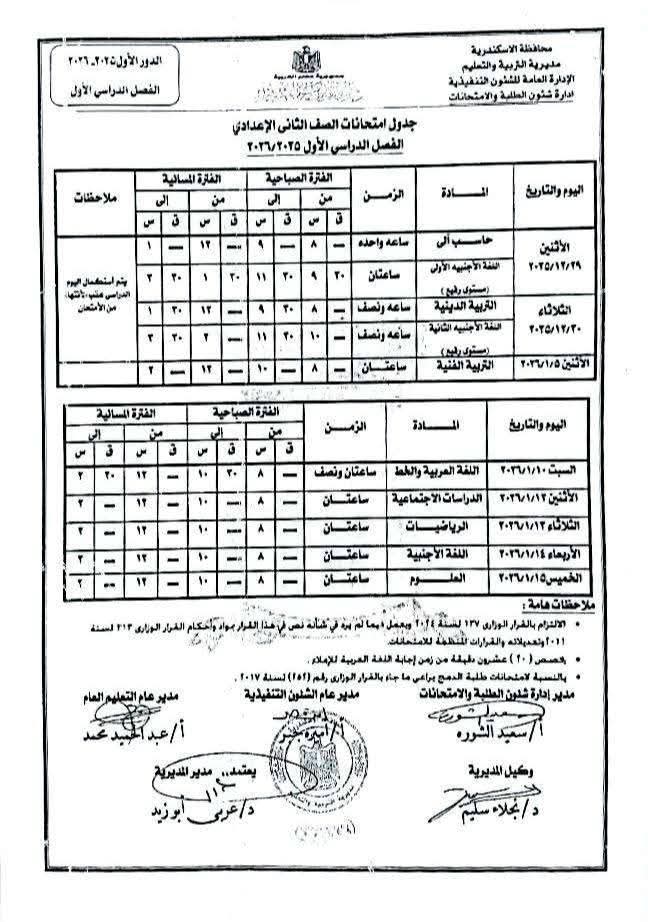 محافظة الاسكندرية
مديرية التربية والتعليم
الإدارة العامة للشئون التنفيذية
ادارة شئون الطلبة والامتحانات
جمهورية مصر العربية
الدور الأول ٢٠٢٥ـ ٢٠٢٦
الفصل الدراسي الأول
جدول امتحانات الصف الثانى الإعدادي
الفصل الدراسي الأول ٢٠٢٦/٢٠٢٥
اليوم والتاريخ المـــادة الزمـن الفترة الصباحية الفترة المسائية ملاحظات
من إلى من إلى
ق س ق س ق س ق س
الأثنين ٢٠٢٥/١٢/٢٩ حاسب ألى ساعه واحده — ٨ — ٩ — ١٢ — ١
اللغة الأجنبيه الأولى (مستوى رفيع) ساعتان ٣٠ ٩ ٣٠ ١١ ٣٠ ١ ٣٠ ٣
الثلاثاء ٢٠٢٥/١٢/٣٠ التربية الدينية ساعه ونصف — ٨ ٣٠ ٩ — ١٢ ٣٠ ١
اللغة الأجنبيه الثانية (مستوى رفيع) ساعه ونصف — ١٠ ٣٠ ١١ — ٢ ٣٠ ٣
الأثنين ٢٠٢٦/١/٥ التربية الفنية ساعتـــان — ٨ — ١٠ — ١٢ — ٢
يتم أستكمال اليوم
الدراسى عقب الأنتهاء
من الأمتحان
اليوم والتاريخ المـــادة الزمـن الفترة الصباحية الفترة المسائية
من إلى من إلى
ق س ق س ق س ق س
السبت ٢٠٢٦/١/١٠ اللغة العربية والخط ساعتان ونصف — ٨ ٣٠ ١٠ — ١٢ ٣٠ ٢
الأثنين ٢٠٢٦/١/١٢ الدراسات الاجتماعية ساعتـــان — ٨ — ١٠ — ١٢ — ٢
الثلاثاء ٢٠٢٦/١/١٣ الرياضيـات ساعتـــان — ٨ — ١٠ — ١٢ — ٢
الأربعاء ٢٠٢٦/١/١٤ اللغة الأجنبية ساعتـــان — ٨ — ١٠ — ١٢ — ٢
الخميس ٢٠٢٦/١/١٥ العلـــوم ساعتـــان — ٨ — ١٠ — ١٢ — ٢
ملاحظات هامة :
• الالتزام بالقرار الوزارى ١٣٧ لسنة ٢٠٢٤ ويعمل فيما لم يرد في شأنه نص في هذا القرار بمواد وأحكام القرار الوزارى ٣١٣ لسنة
٢٠١١ وتعديلاته والقرارات المنظمة للامتحانات.
• يخصص (٢٠) عشرون دقيقة من زمن إجابة اللغة العربية للإملاء.
• بالنسبة لامتحانات طلبة الدمج يراعى ما جاء بالقرار الوزارى رقم (٢٥٢) لسنة ٢٠١٧ .
مدير إدارة شئون الطلبة والامتحانات مدير عام الشئون التنفيذية مدير عام التعليم العام
أ/ سعيد الشوره أ/ أميرة أ/ عبد الحميد محمد
وكيل المديرية يعتمد،، مدير المديرية
د/ نجلاء سليم د/ عربى أبوزيد